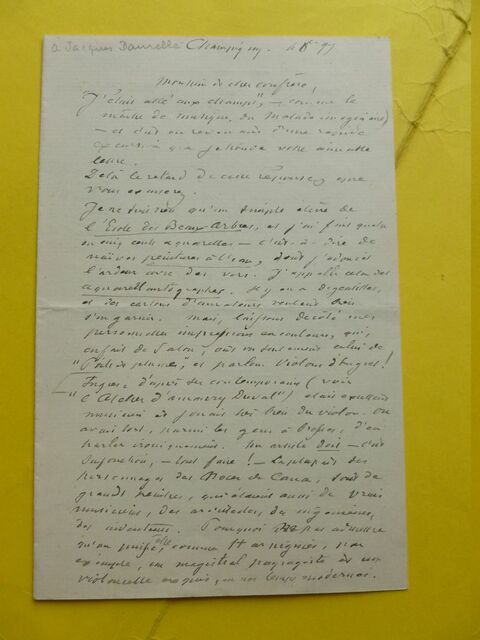 à Jacques Daurelle Champigny, 97
Monsieur et cher confrère,
"J'étais allé aux champs", – comme le
maître de musique du Malade imaginaire)
– et c'est en revenant d'une
excursion que je trouve votre aimable
lettre.
De là le retard de cette réponse, que
vous excuserez.
Je ne suis rien qu'un simple élève de
l'École des Beaux-Arbres, et j'ai fait quatre
ou cinq cents aquarelles – c'est-à-dire de
naïves peintures à l'eau, dont j'adoucis
l'ardeur avec des vers. J'appelle cela des
aquarellautographes. Il y en a
et des cartons d'amateurs veulent bien
s'en garnir. Mais, laissons de côté mes
personnelles impressions en couleurs, qui,
de Salon, celui de
"Poil et plume", et parlons Violon d'Ingres!
Ingres, d'après ses contemporains (voir
"l'Atelier d'Amaury Duval") était excellent
musicien et jouait très bien du violon. On
avait tort, parmi les gens à Propos, d'en
parler ironiquement. Un artiste doit – c'est
sa fonction, – tout faire! – La plupart des
personnages des Noces de Cana, sont de
grands peintres, qui étaient aussi de vrais
musiciens, des architectes, des ingénieurs,
des inventeurs. Pourquoi ne pas admettre
qu'on puisse être, comme Harpignies, par
exemple, un magistral paysagiste et un
violoncelle exquis, en nos temps modernes.